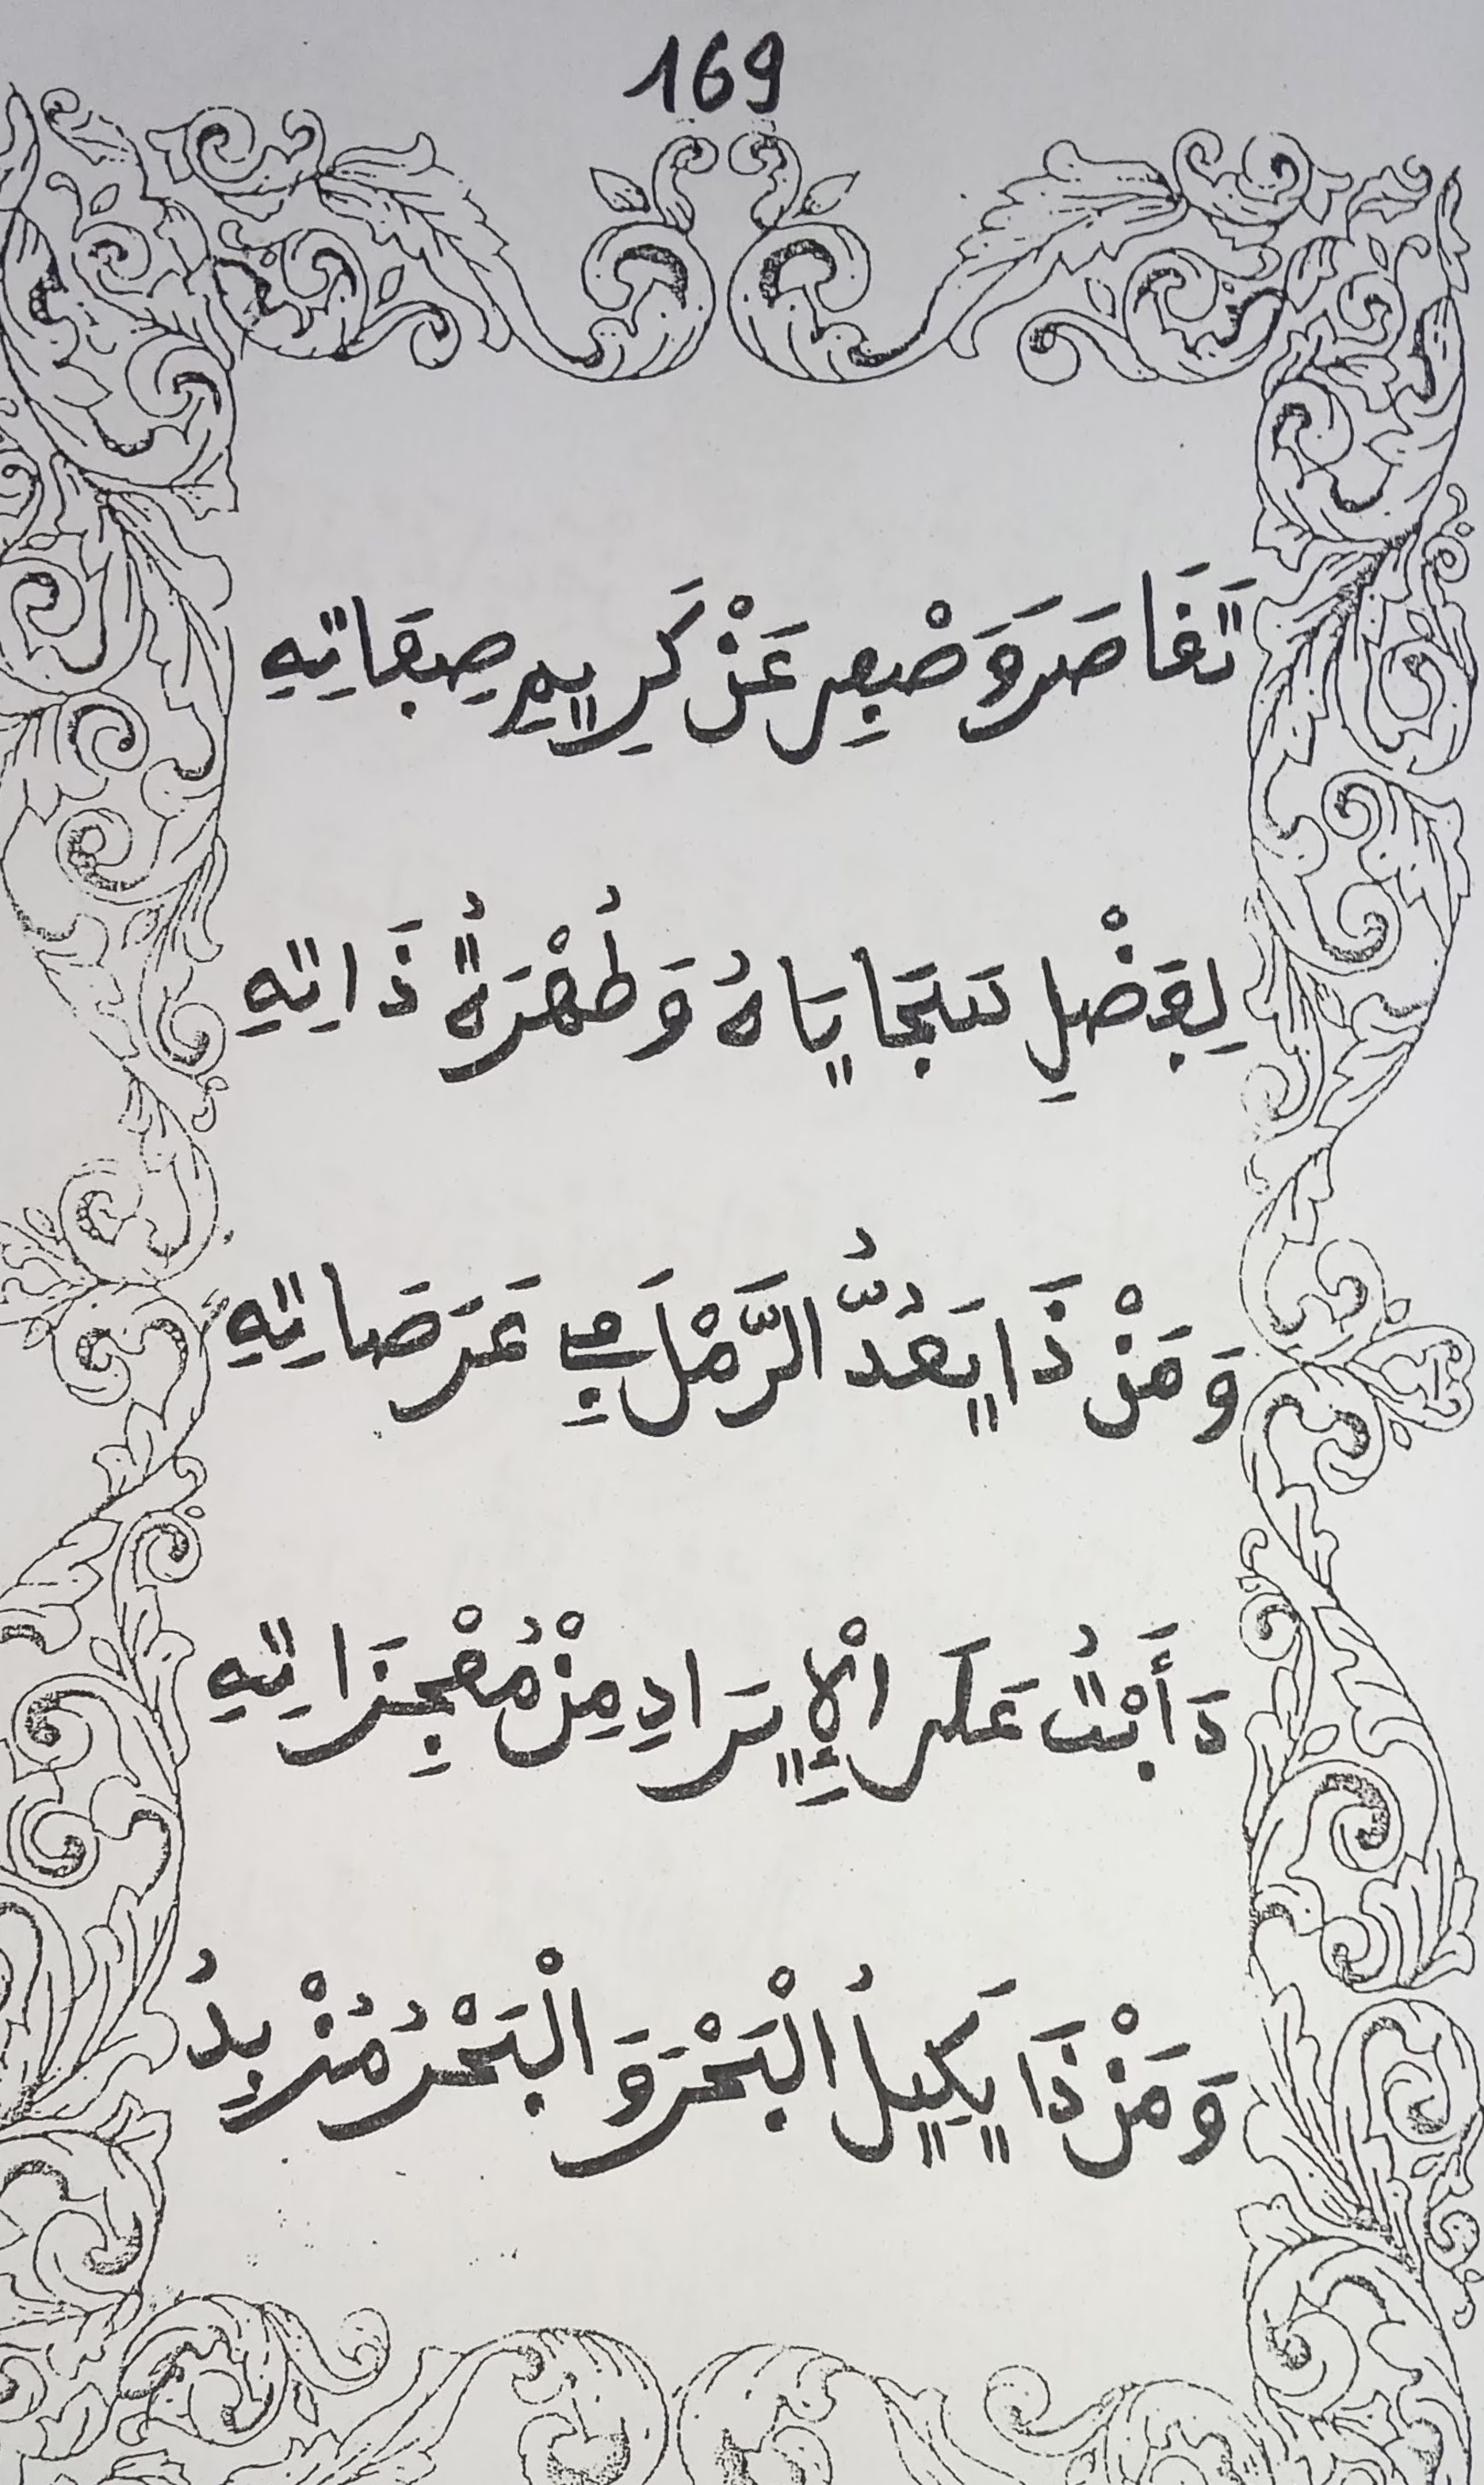 169
تَقَاصَرَ وَصْفِي عَنْ كَرِيمِ صِفَاتِهِ
لِفَضْلِ سَجَايَاهُ وَطُهْرَةُ ذَاتِهِ
وَمَنْ ذَا يَعُدُّ الرَّمْلَ فِي عَرَصَاتِهِ
دَأَبْتُ عَلَى الْإِيرَادِ مِنْ مُعْجِزَاتِهِ
وَمَنْ ذَا يَكِيلُ الْبَحْرَ وَالْبَحْرُ مُزْبِدُ